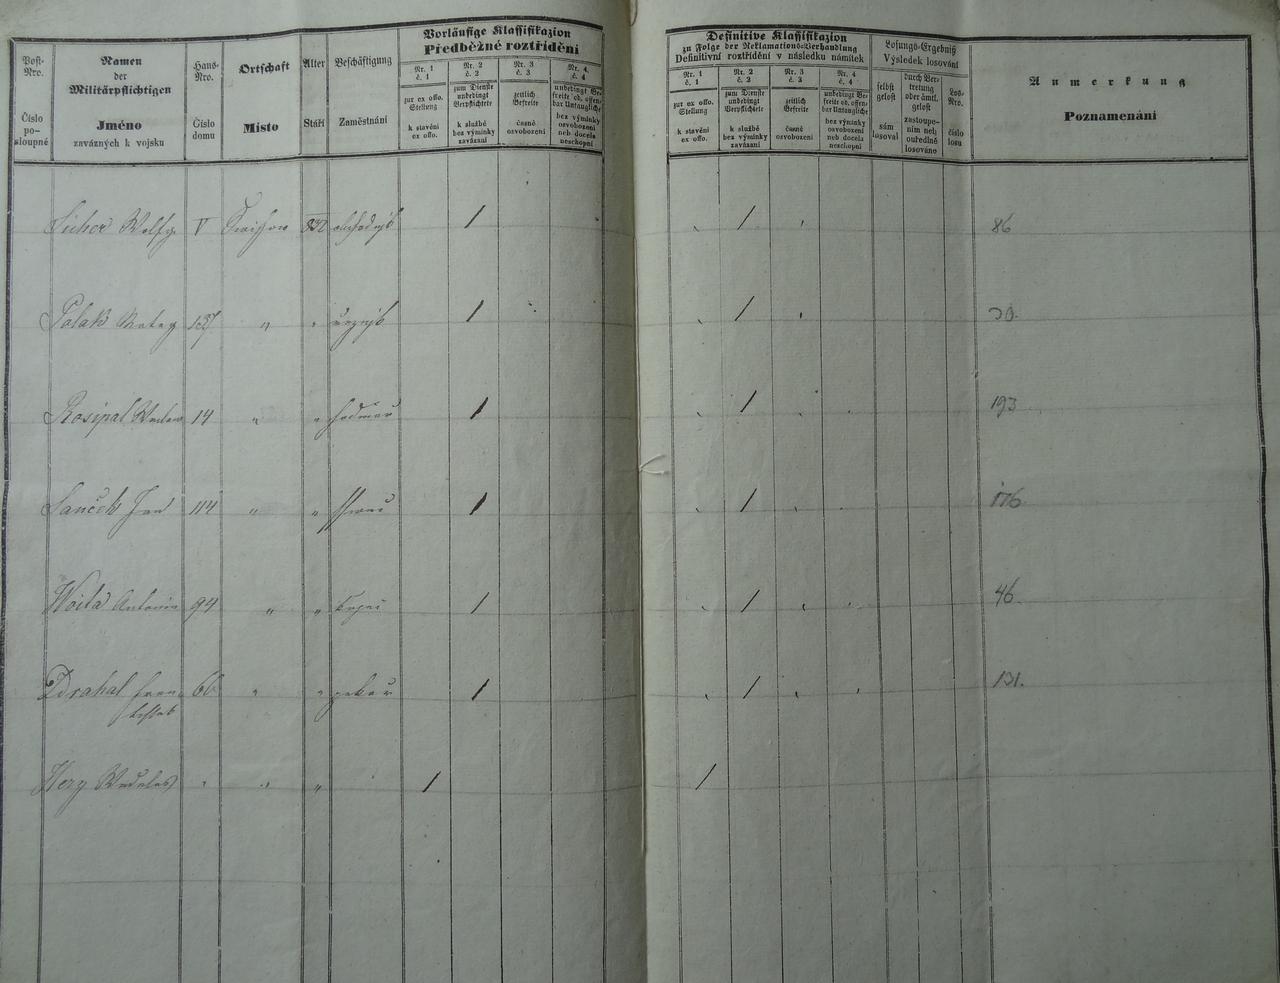 Post-
Nro.
Číslo
po-
sloupné
Namen
der
Militärpflichtigen
Jméno
zavázných k vojsku
Haus-
Nro.
Číslo
domu
Ortschaft
Místo
Alter
Stáří
Beschäftigung
Zaměstnání
Vorläufige Klassifikazion
Předběžné roztřídění
Nr. 1
č. 1
zur ex offo.
Stellung
k stavění
ex offo.
Nr. 2
č. 2
zum Dienste
unbedingt
Verpflichtete
k službě
bez výmínky
zavázaní
Nr. 3
č. 3
zeitlich
Befreite
časně
osvobození
Nr. 4.
č. 4
unbedingt Be-
freite od. offen-
bar Untaugliche
bez výmínky
osvobození
neb docela
neschopní
Definitive Klassifikazion
zu Folge der Reklamations-Verhandlung
Definitivní roztřídění v následku námitek
Nr. 1
č. 1
zur ex offo.
Stellung
k stavění
ex offo.
Nr. 2
č. 2
zum Dienste
unbedingt
Verpflichtete
k službě
bez výmínky
zavázaní
Nr. 3
č. 3
zeitlich
Befreite
časně
osvobození
Nr. 4
č. 4
unbedingt Be-
freite od. offen-
bar Untaugliche
bez výmínky
osvobození
neb docela
neschopní
Losungs-Ergebniß
Výsledek losování
selbst
gelost
sám
losoval
durch Ver-
tretung
oder ämtl.
gelost
zastoupe-
ním neb
ouředlně
losováno
Los-
Nro.
číslo
losu
Anmerkung
Poznamenání
Sicher Wolfg. V 832 / / 86
Polak Mateg 137 " " / / 30.
Rosipal 14 " " / / 193
Jan 114 " " / / 176
Woita Antonin 94 " " / / 46.
Drahal 66 " " / / 131.
Herz " " " / /